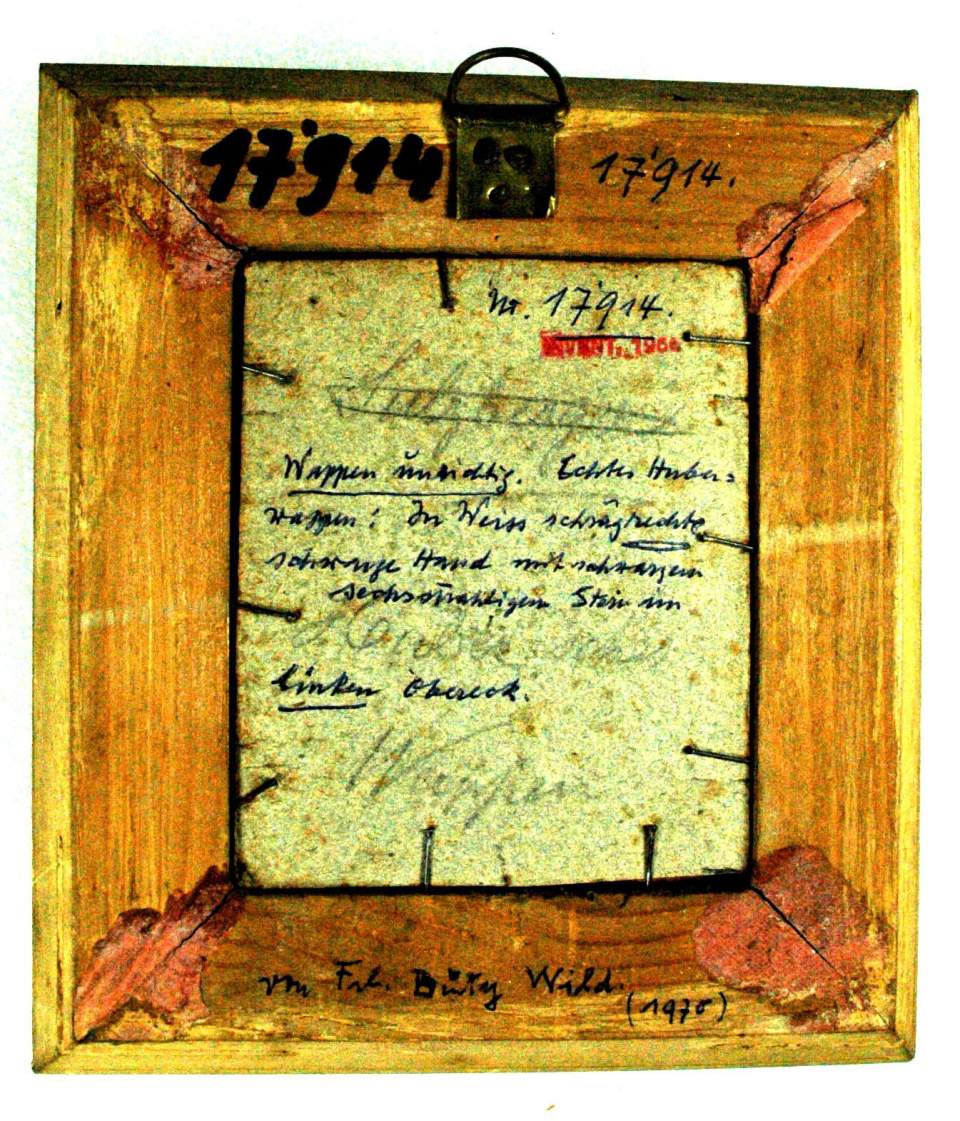 17'914
17'914.
Nr. 17'914.
Wappen unrichtig. Echtes Huber=
wappen: In Weiss schrägrechte
schwarze Hand mit schwarzem
sechsstrahligem Stern im
linken Obereck.
Wappen
von Frl. Düty Wild.
(1970)